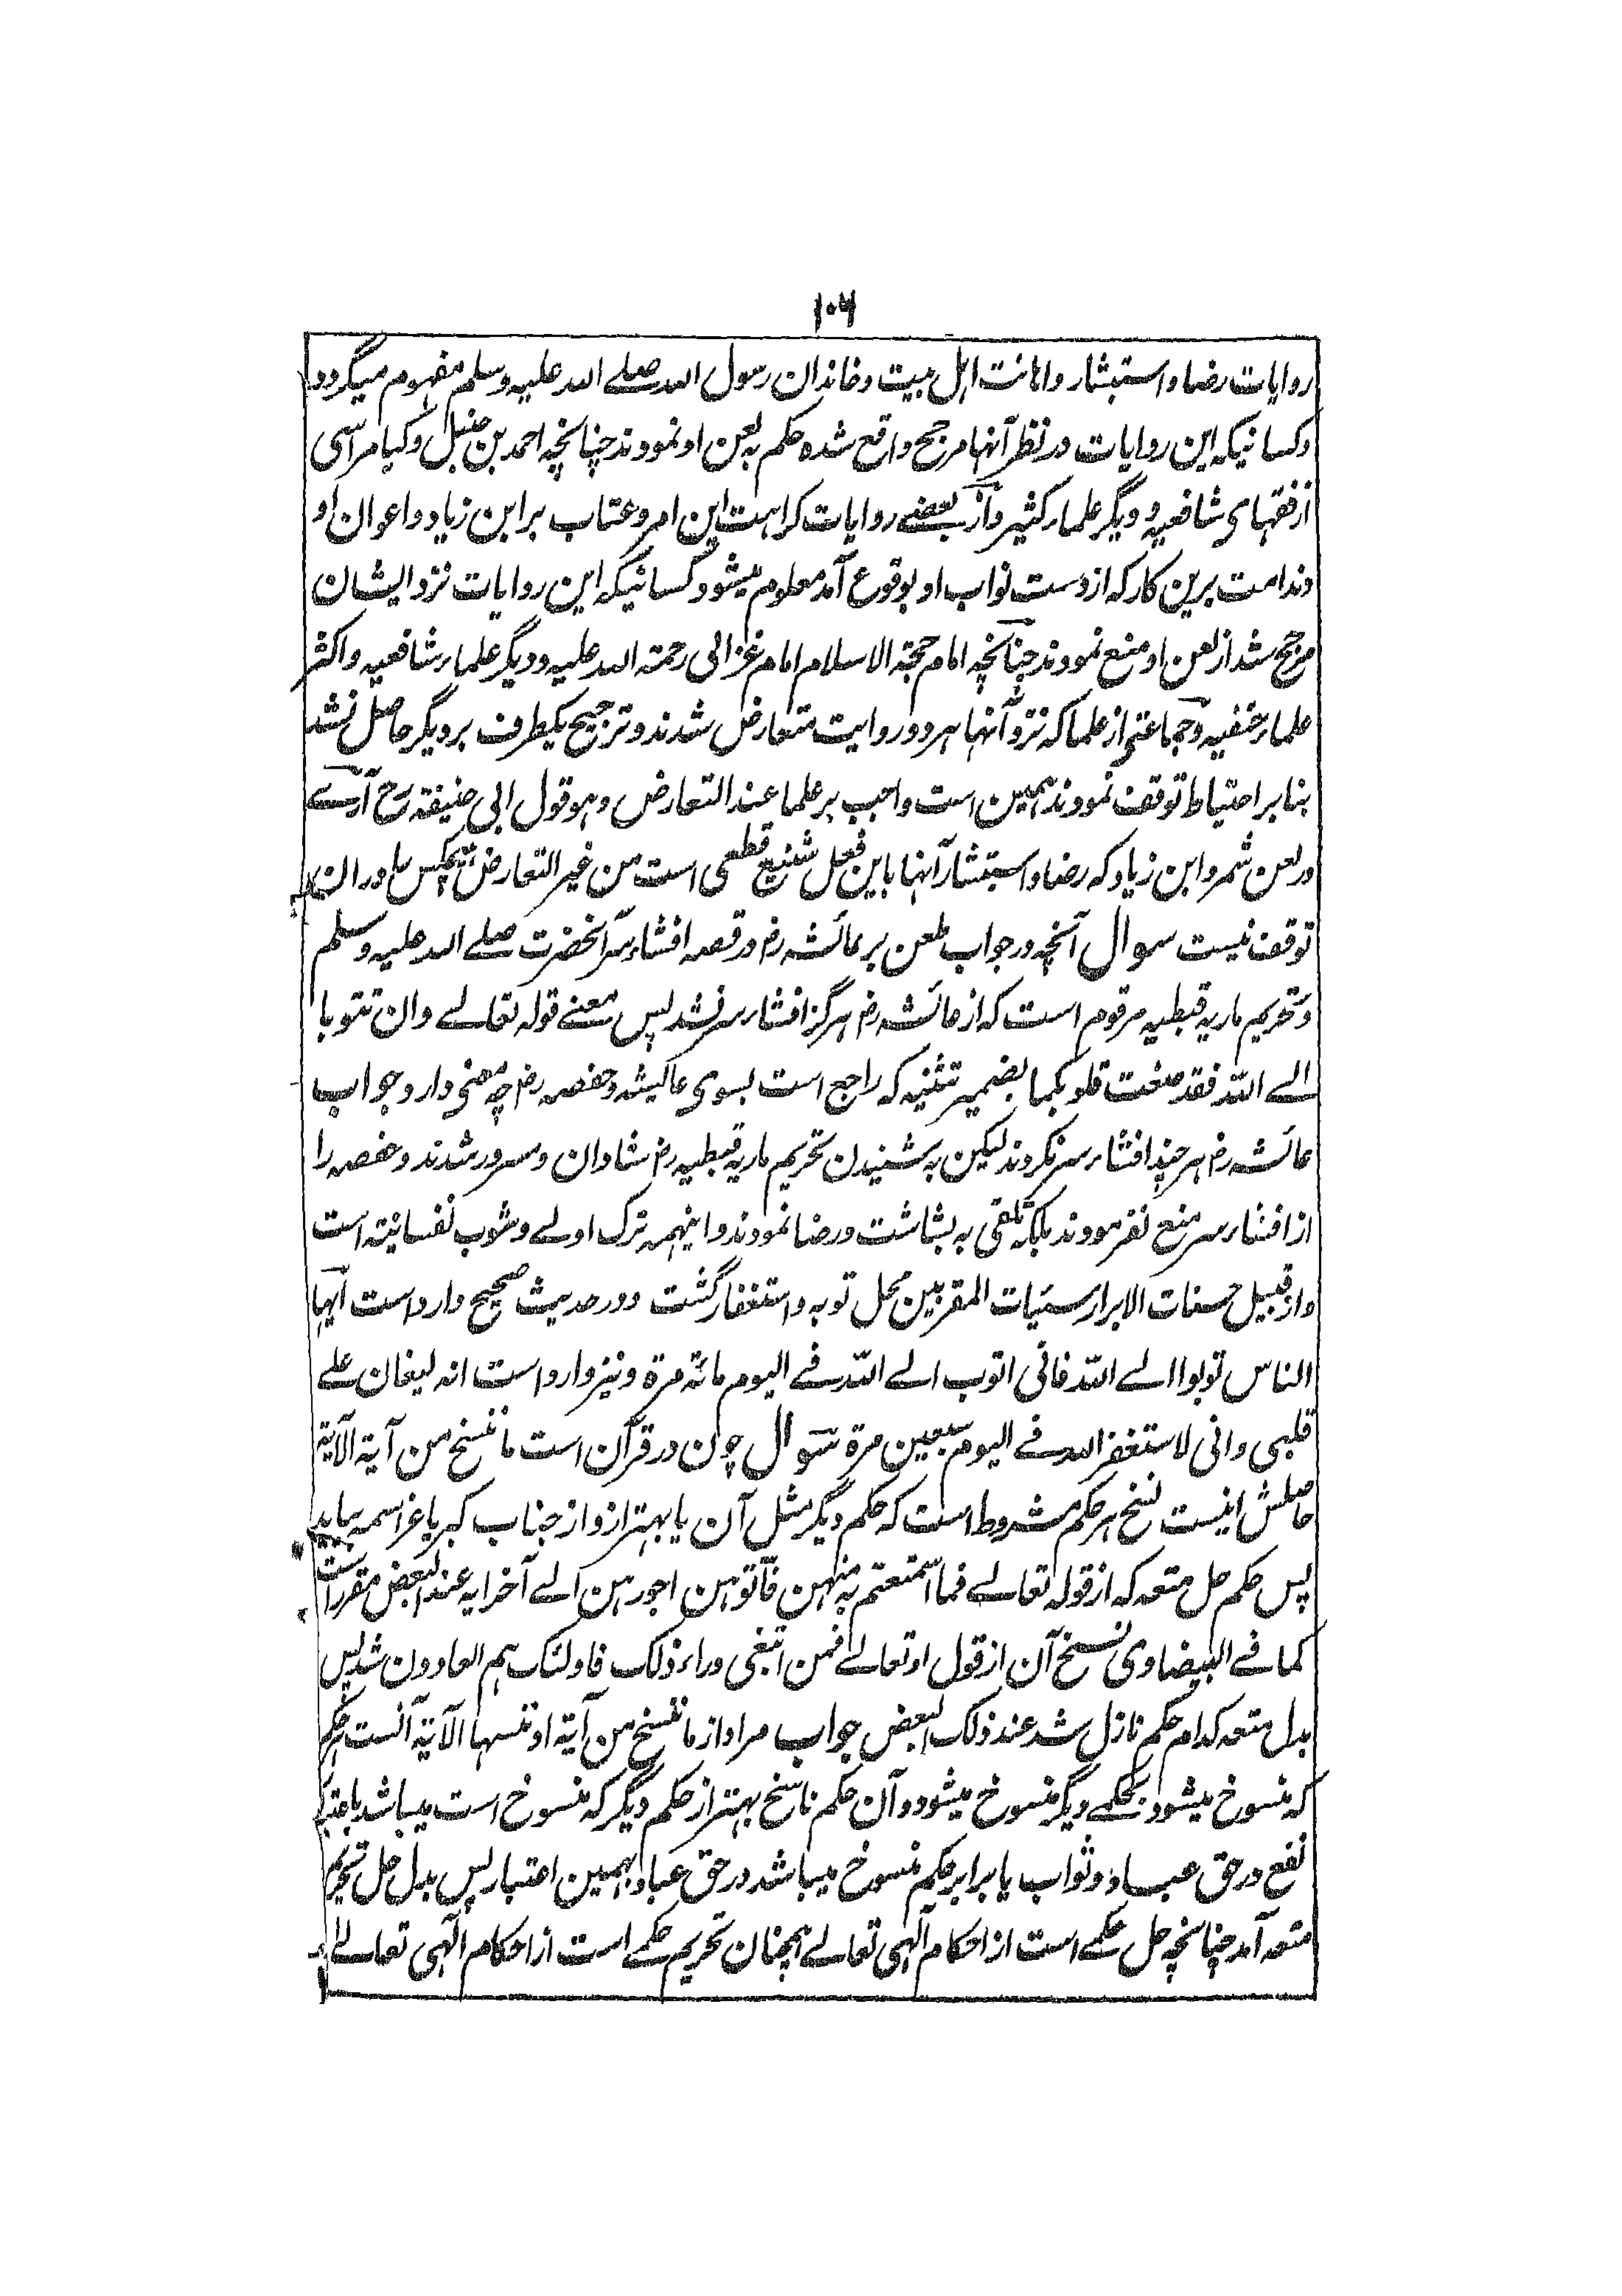 ۱۰۶
روایات رضا و استبشار و اہانت اہل بیت و خاندان رسول اللہ صلے اللہ علیہ وسلم مفہوم میگردد
و کسانیکہ این روایات در نظر آنہا مرجح واقع شدہ حکم بہ لعن او نمودند چنانچہ احمد بن حنبل و کیا ہراسی
از فقہای شافعیہ و دیگر علماء کثیر و از بعضے روایات کراہت این امر و عتاب بر ابن زیاد و اعوان او
و ندامت برین کار کہ از دست نواب او بوقوع آمد معلوم میشود کسانیکہ این روایات نزد ایشان
مرجح شد از لعن او منع نمودند چنانچہ امام حجۃ الاسلام امام غزالی رحمتہ اللہ علیہ و دیگر علماء شافعیہ و اکثر
علماء حنفیہ و جماعتی از علما کہ نزد آنہا ہر دو روایت متعارض شدند و ترجیح یکطرف بر دیگر حاصل نشد
بنا بر احتیاط توقف نمودند ہمین است واجب بر علما عند التعارض و ہو قول ابی حنیفۃ رح آرے
در لعن شمر و ابن زیاد کہ رضا و استبشار آنہا باین فعل شنیع قطعی است من غیر التعارض ہیچکس را در ان
توقف نیست سوال آنچہ در جواب طعن بر عائشہ رض در قصہ افشاء سر آنحضرت صلے اللہ علیہ وسلم
و تحریم ماریہ قبطیہ مرقوم است کہ از عائشہ رض ہرگز افشاء سر نشد پس معنے قولہ تعالے و ان تتوبا
الے اللہ فقد صغت قلوبکما بضمیر تثنیہ کہ راجع است بسوی عائشہ و حفصہ رض چہ معنی دارد جواب
عائشہ رض ہر چند افشاء سر نکردند لیکن بہ شنیدن تحریم ماریہ قبطیہ رض شادان و مسرور شدند و حفصہ را
از افشاء سر منع نفرمودند بلکہ تلقی بہ بشاشت و رضا نمودند و اینہمہ ترک اولے و شوب نفسانیتہ است
و از قبیل حسنات الابرار سئیات المقربین محل توبہ و استغفار گشت و در حدیث صحیح وارد است ایہا
الناس توبوا الے اللہ فانی اتوب الے اللہ فے الیوم مائۃ مرۃ و نیز وارد است انہ لیغان علے
قلبی و انی لاستغفر اللہ فے الیوم سبعین مرۃ سوال چون در قرآن است ما ننسخ من آیۃ الآیۃ
حاصلش اینست نسخ ہر حکم مشروط است کہ حکم دیگر مثل آن یا بہتر ازو از جناب کبریا عز اسمہ بیاید
پس حکم حل متعہ کہ از قولہ تعالے فما استمتعتم بہ منہن فآتوہن اجورہن الے آخر ایہ عند البعض مقرر است
کما فے البیضاوی نسخ آن از قول او تعالے فمن ابتغی وراء ذلک فاولئک ہم العادون شد پس
بدل متعہ کدام حکم نازل شد عند ذلک البعض جواب مراد از ما ننسخ من آیۃ او ننسہا الآیۃ آنست حکم
کہ منسوخ میشود بحکمے دیگر منسوخ میشود و آن حکم ناسخ بہتر از حکم دیگر کہ منسوخ است میباشد باعتبار
نفع در حق عباد و ثواب یا برابر حکم منسوخ میباشد در حق عباد بہمین اعتبار پس بدل حل تحریم
متعہ آمد چنانچہ حل حکمے است از احکام آلہی تعالے ہمچنان تحریم حکمے است از احکام آلہی تعالے